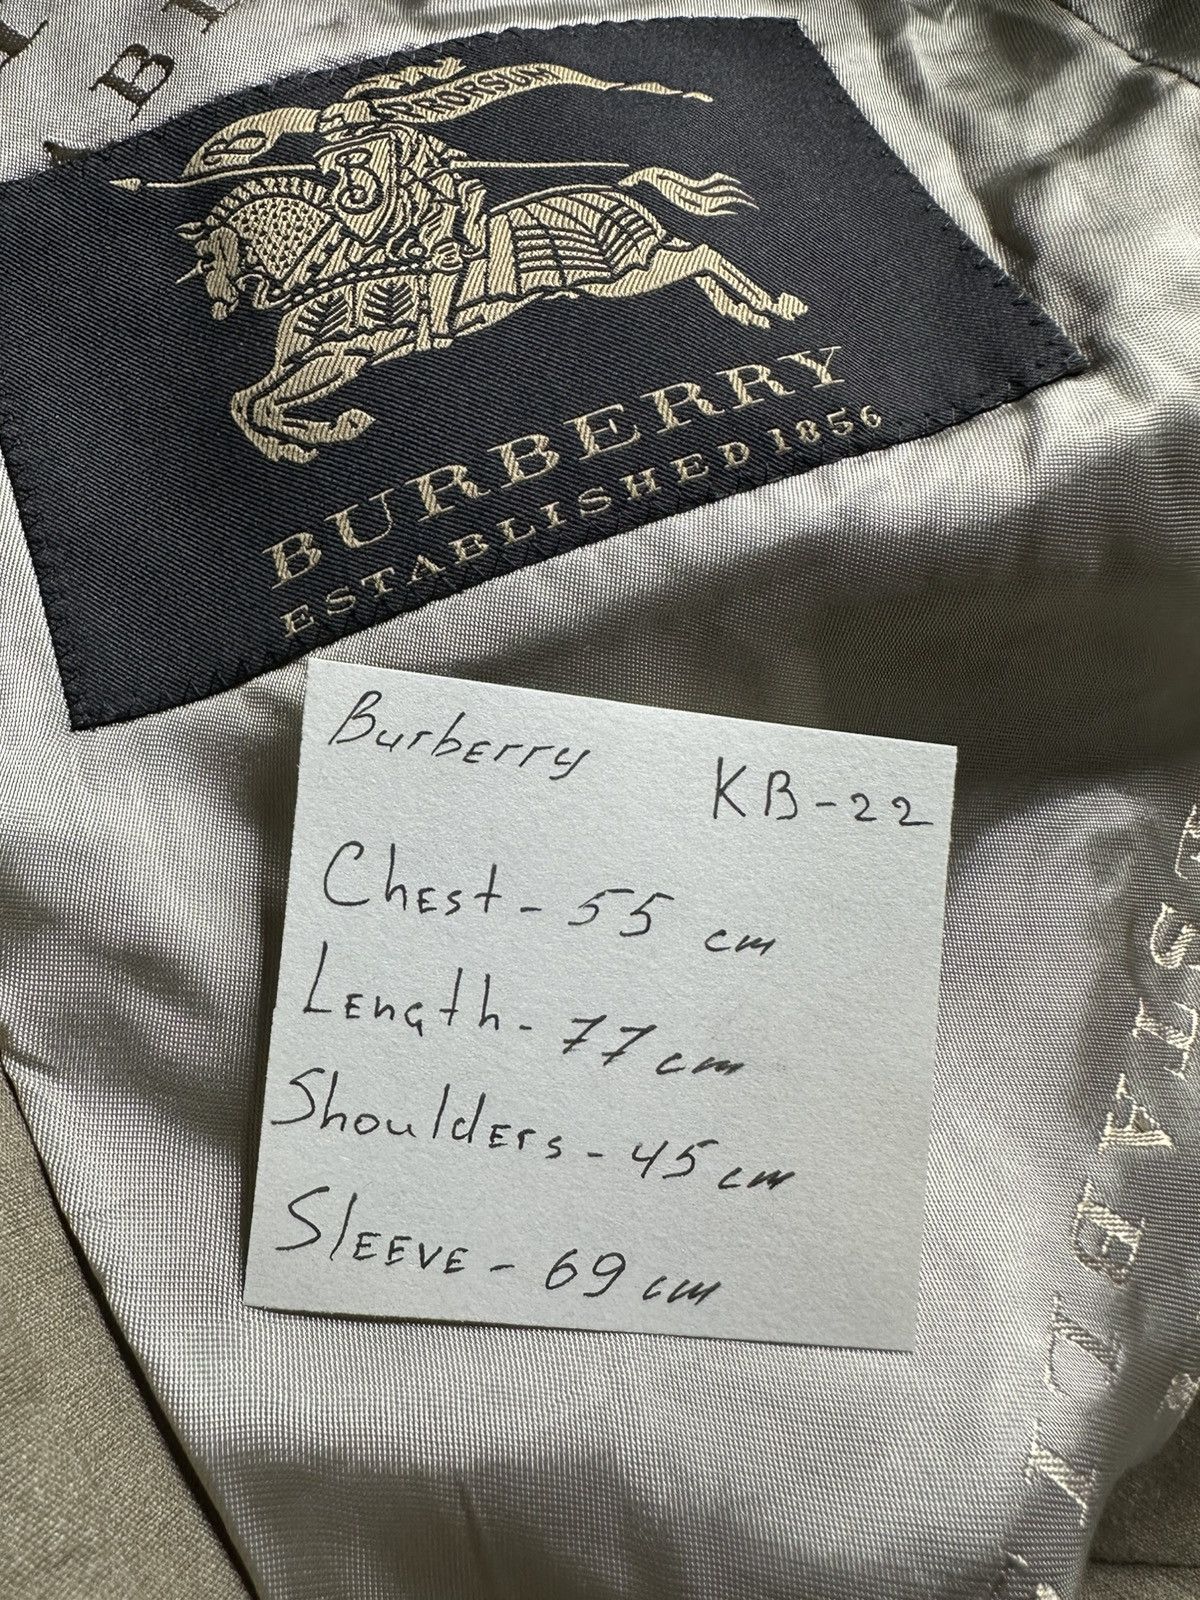 PRORSUM
B
BURBERRY
ESTABLISHED 1856
Burberry KB-22
Chest - 55 cm
Length - 77 cm
Shoulders - 45 cm
Sleeve - 69 cm